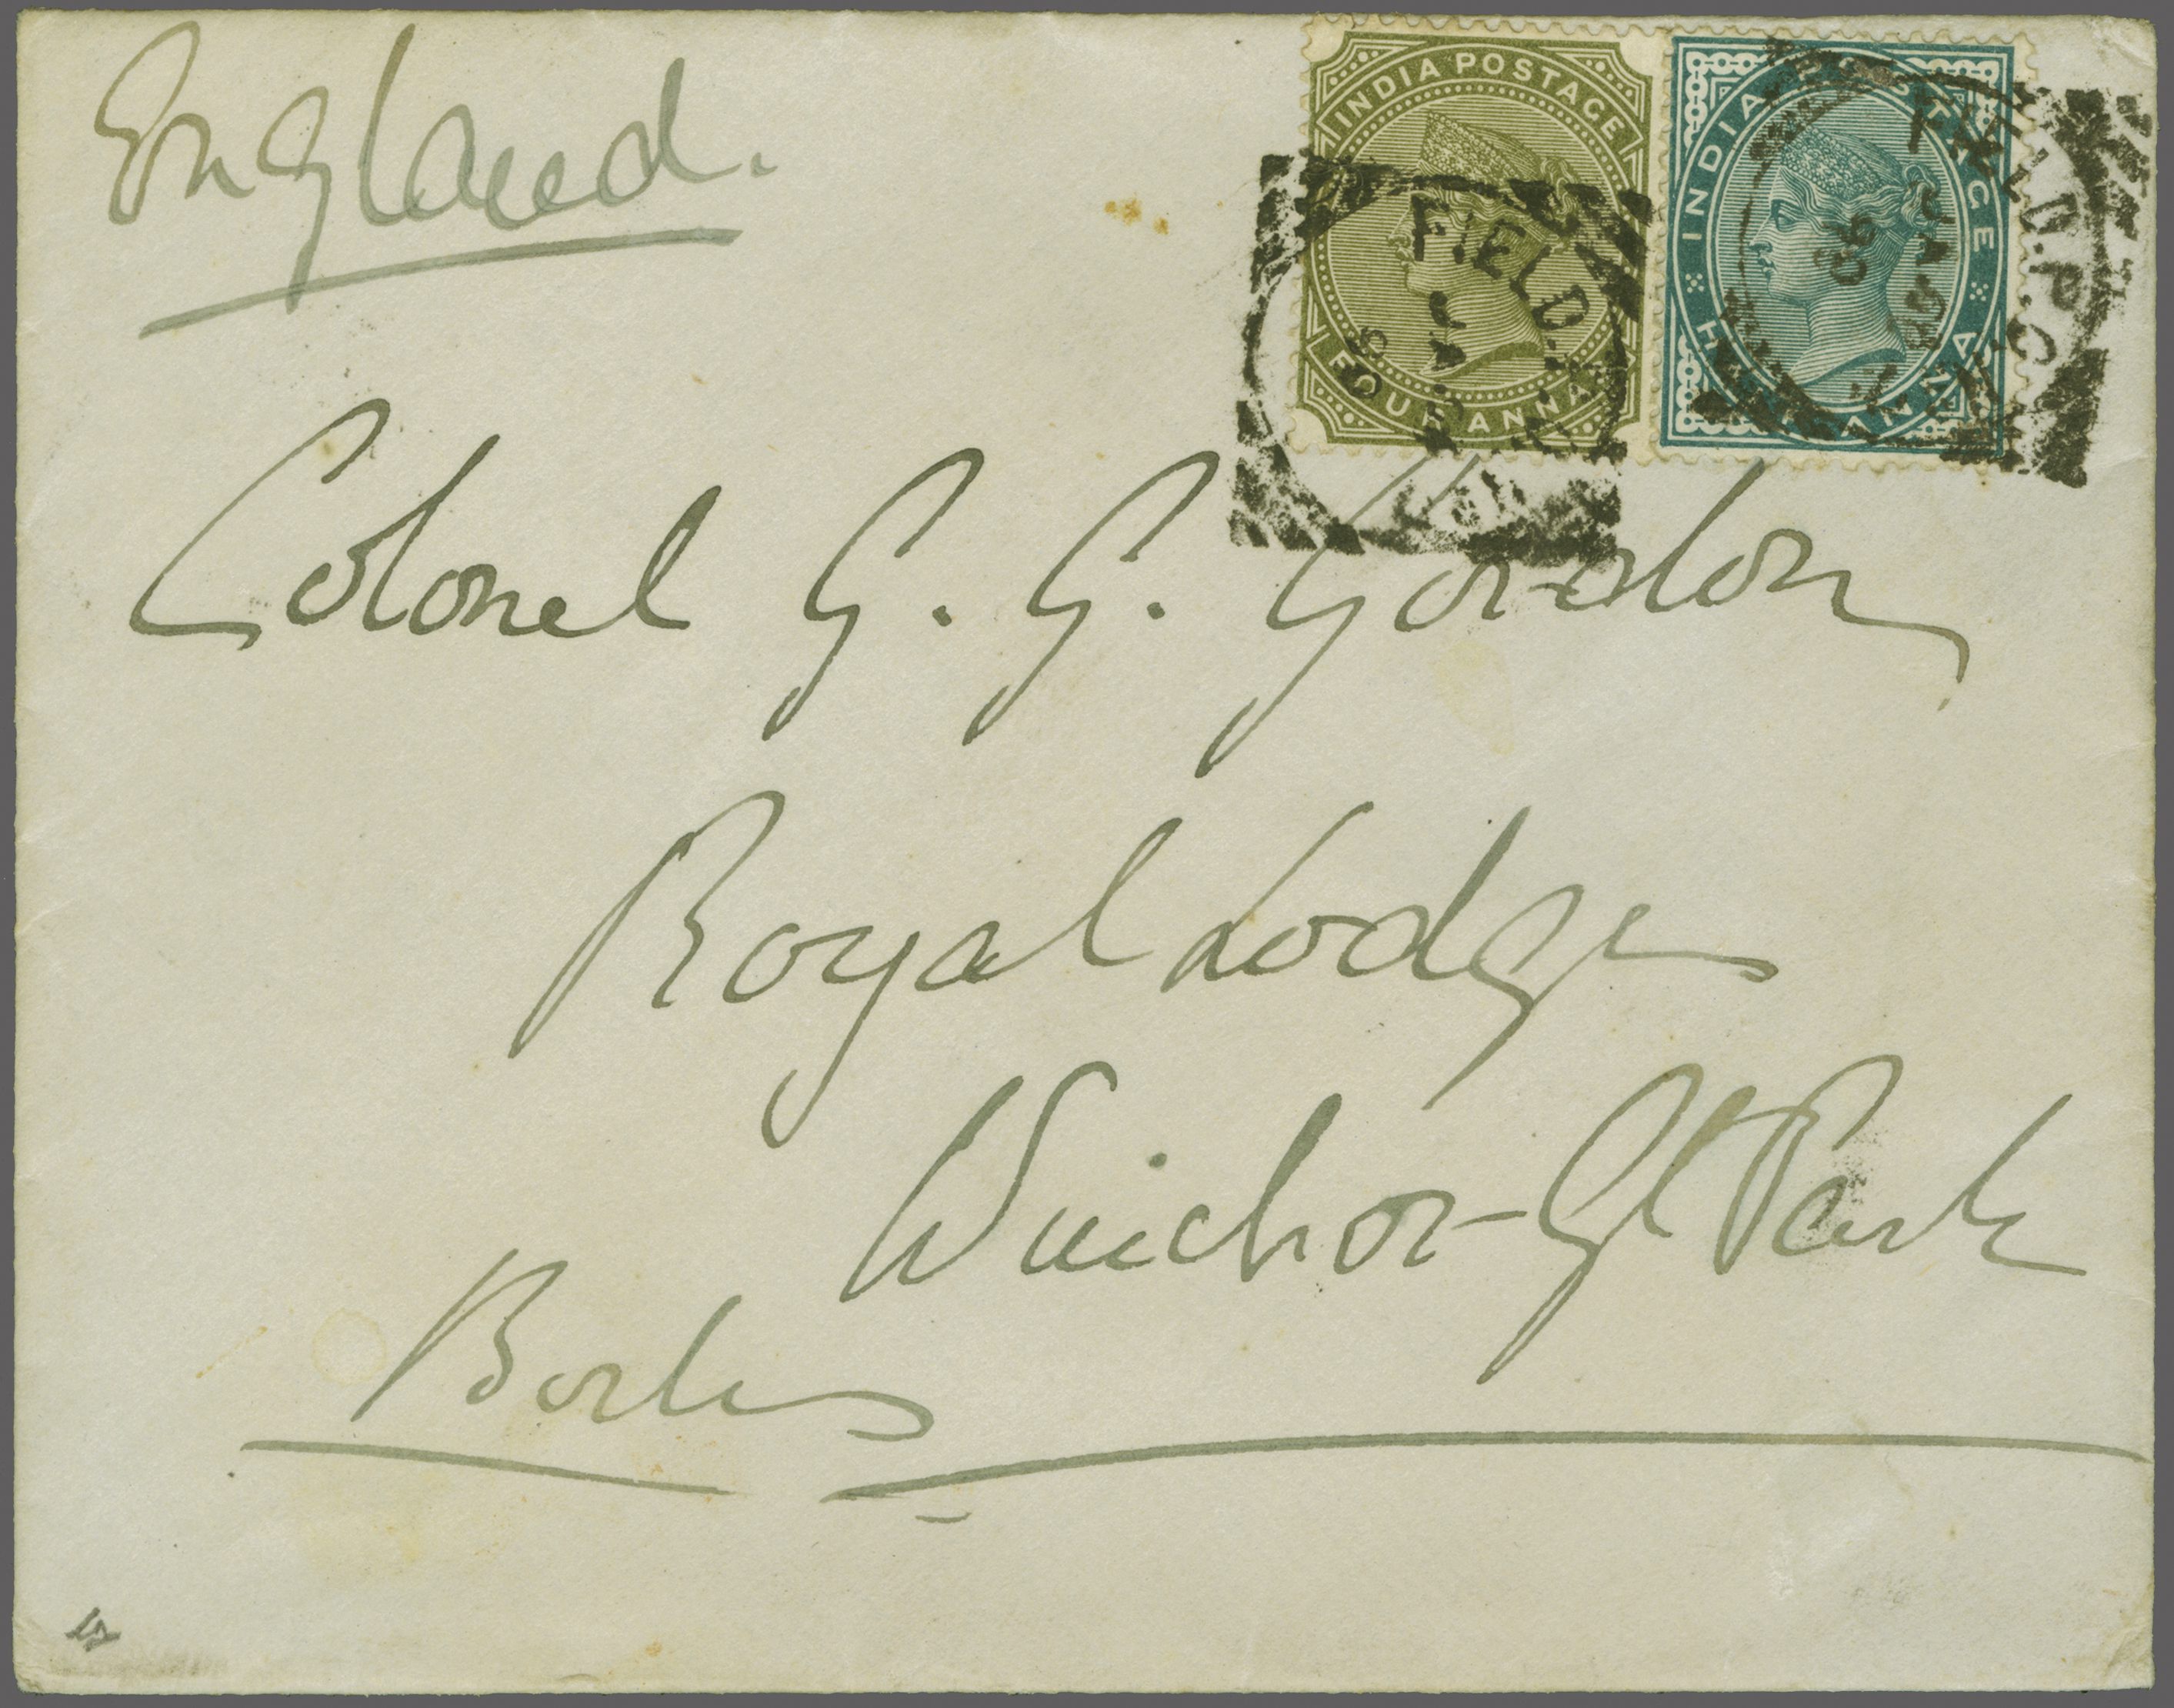 England.
INDIA POSTAGE
FOUR ANNAS
INDIA POSTAGE
HALF ANNA
FIELD.P.
JA
96
FIELD.P.O.
JA
96
Colonel G. G. Gordon
Royal Lodge
Windsor Gt Park
Berks